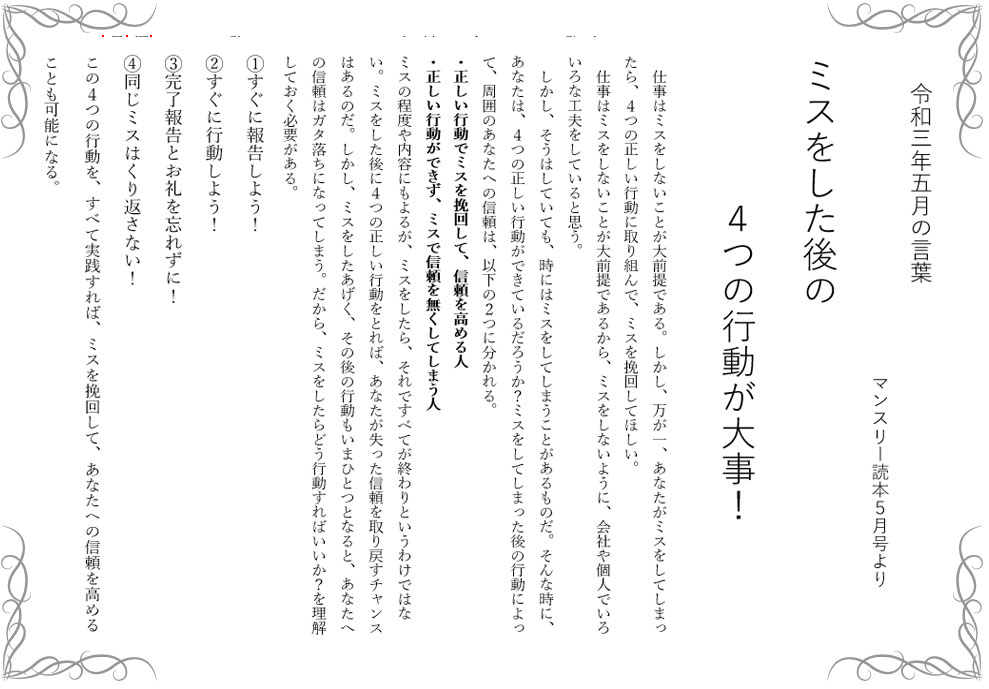 令和三年五月の言葉
マンスリー読本５月号より
ミスをした後の
４つの行動が大事！
仕事はミスをしないことが大前提である。しかし、万が一、あなたがミスをしてしまっ
たら、４つの正しい行動に取り組んで、ミスを挽回してほしい。
仕事はミスをしないことが大前提であるから、ミスをしないように、会社や個人でいろ
いろな工夫をしていると思う。
しかし、そうはしていても、時にはミスをしてしまうことがあるものだ。そんな時に、
あなたは、４つの正しい行動ができているだろうか？ミスをしてしまった後の行動によっ
て、周囲のあなたへの信頼は、以下の２つに分かれる。
・正しい行動でミスを挽回して、信頼を高める人
・正しい行動ができず、ミスで信頼を無くしてしまう人
ミスの程度や内容にもよるが、ミスをしたら、それですべてが終わりというわけではな
い。ミスをした後に４つの正しい行動をとれば、あなたが失った信頼を取り戻すチャンス
はあるのだ。しかし、ミスをしたあげく、その後の行動もいまひとつとなると、あなたへ
の信頼はガタ落ちになってしまう。だから、ミスをしたらどう行動すればいいか？を理解
しておく必要がある。
①すぐに報告しよう！
②すぐに行動しよう！
③完了報告とお礼を忘れずに！
④同じミスはくり返さない！
この４つの行動を、すべて実践すれば、ミスを挽回して、あなたへの信頼を高める
ことも可能になる。